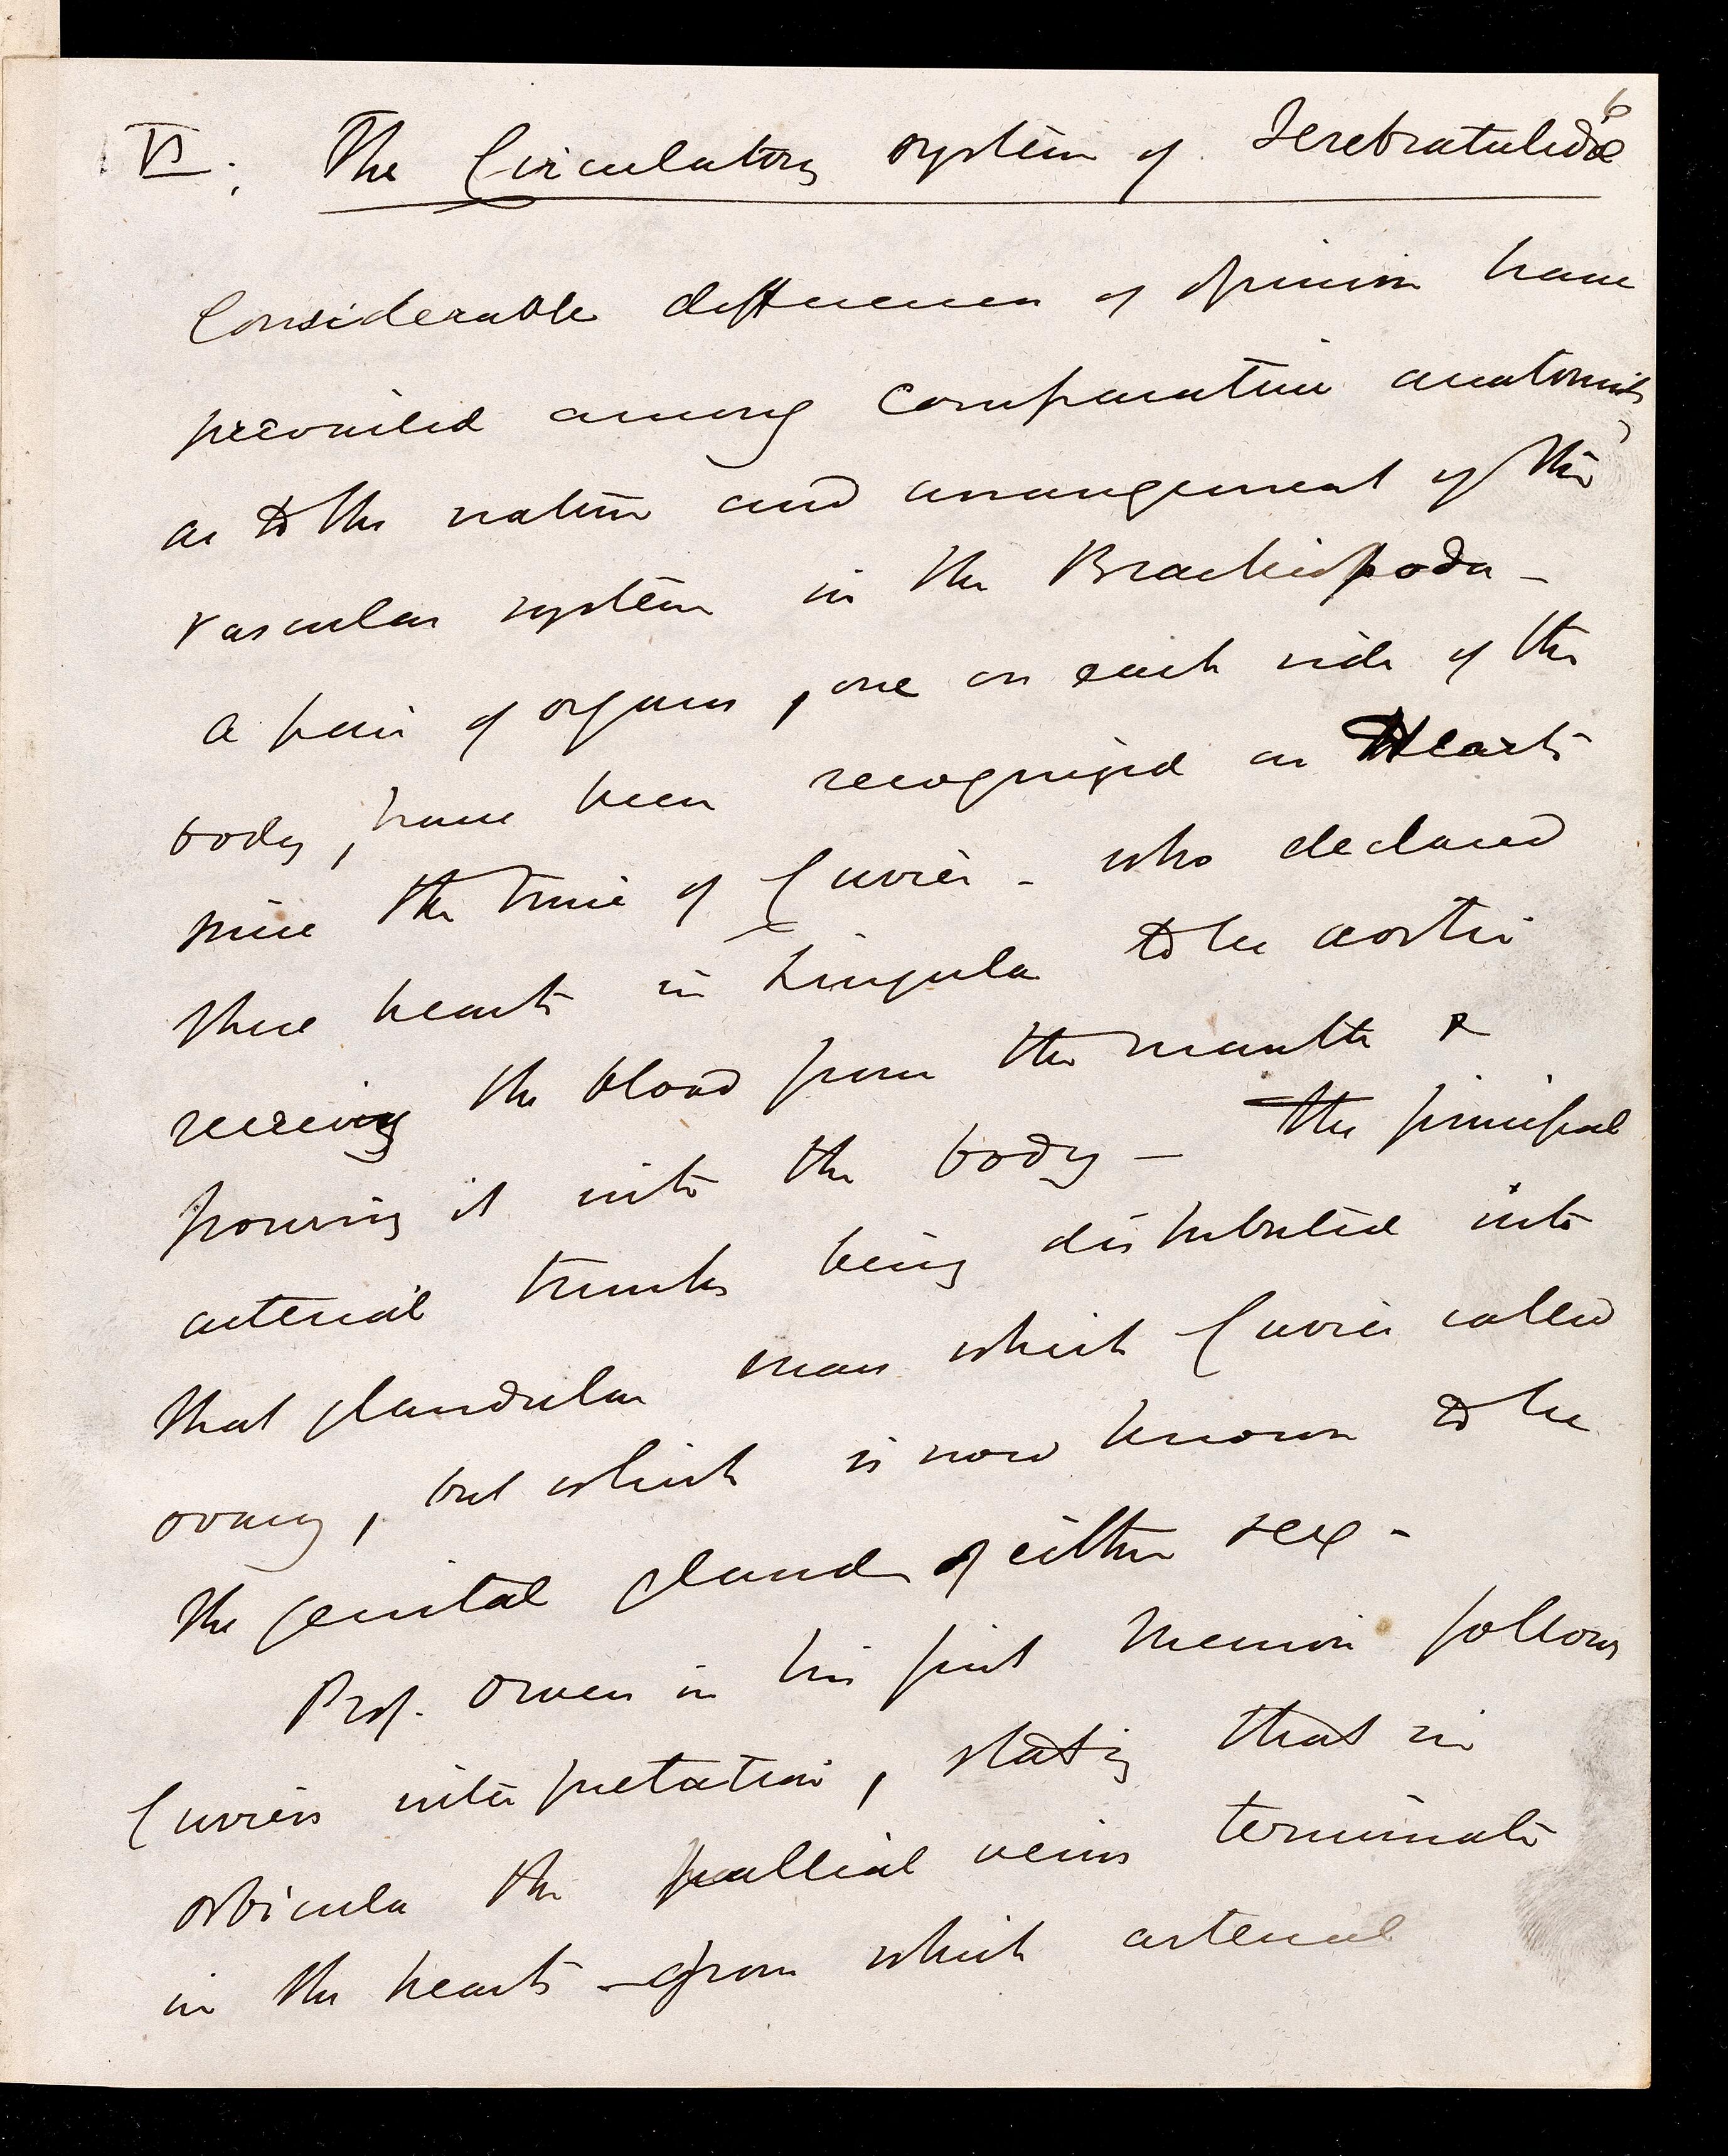 6
VI. The Circulatory system of Terebratulidæ
Considerable differences of opinion have
prevailed among comparative anatomists
as to the nature and arrangement of the
vascular system in the Brachiopoda –
a pair of organs, one on each side of the
body, have been recognized as Hearts
since the time of Cuvier – who declared
these hearts in Lingula to be aortic
receiving the blood from the mantle &
pouring it into the body – the principal
arterial trunks being distributed into
that glandular mass which Cuvier called
ovary, but which is now known to be
the genital gland of either sex –
Prof. Owen in his first Memoir follows
Cuviers interpretation, stating that in
orbicula the pallial veins terminate
in the hearts – from which arterial